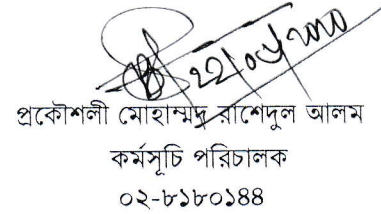 ২২/০৬/২০১০
প্রকৌশলী মোহাম্মদ রাশেদুল আলম
কর্মসূচি পরিচালক
০২-৮১৮০১৪৪